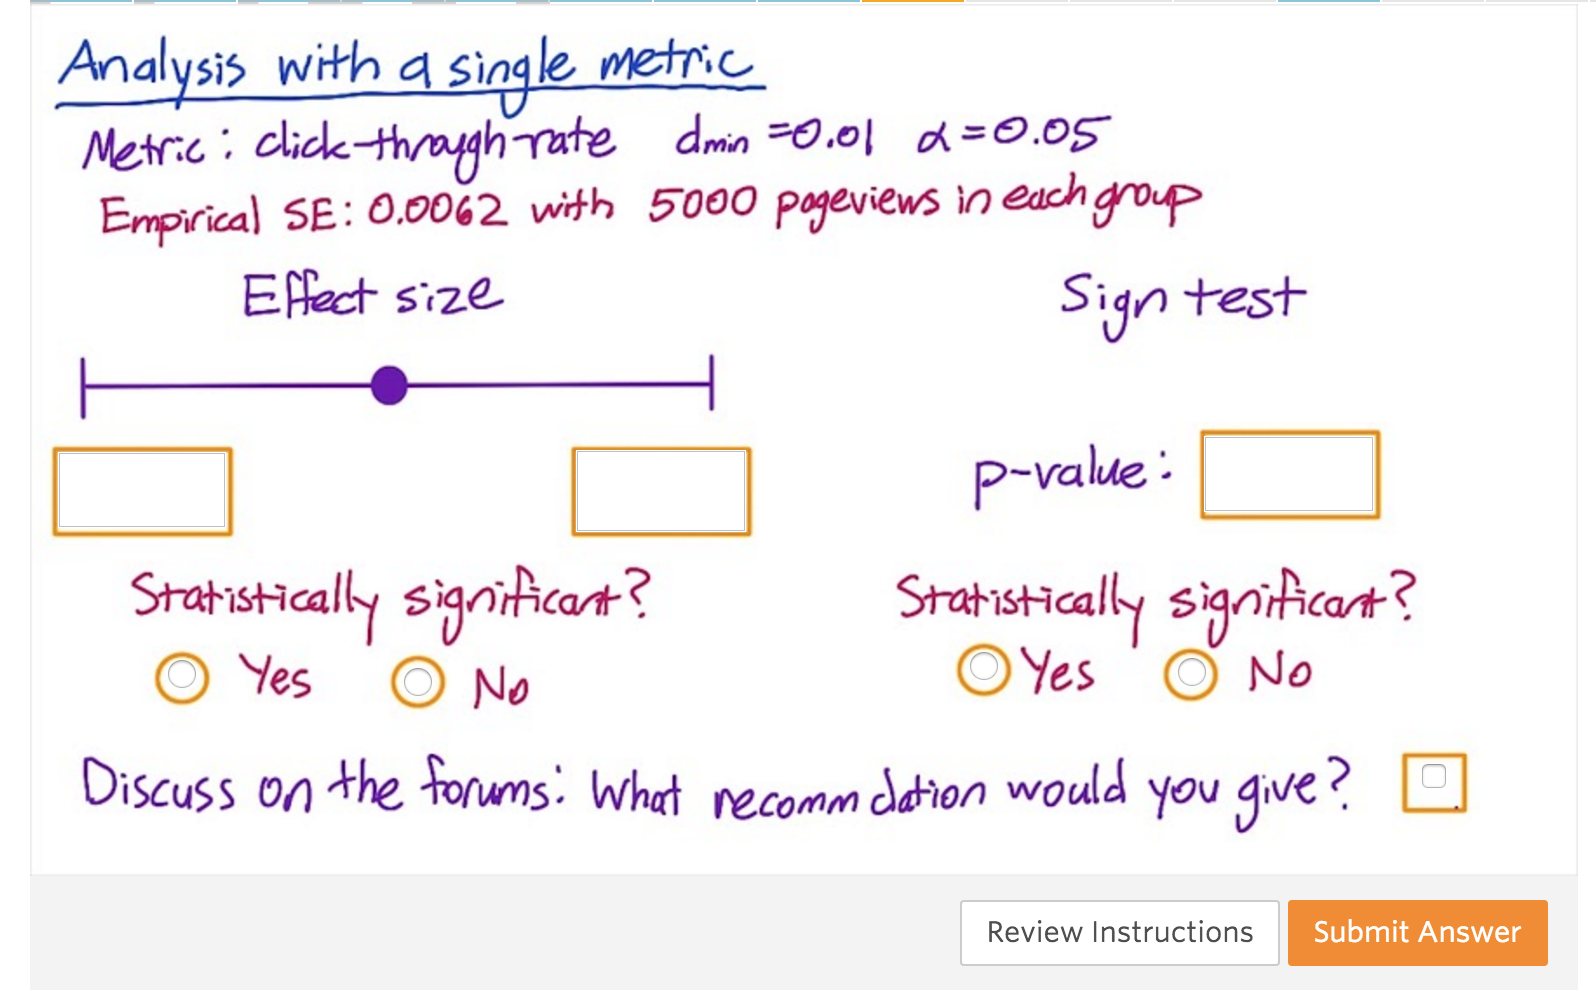 Analysis with a single metric
Metric: click-through-rate dmin =0.01 α=0.05
Empirical SE: 0.0062 with 5000 pageviews in each group
Effect size
Sign test
p-value:
Statistically significant?
Statistically significant?
Yes No
Yes No
Discuss on the forums: What recommdation would you give?
Review Instructions
Submit Answer